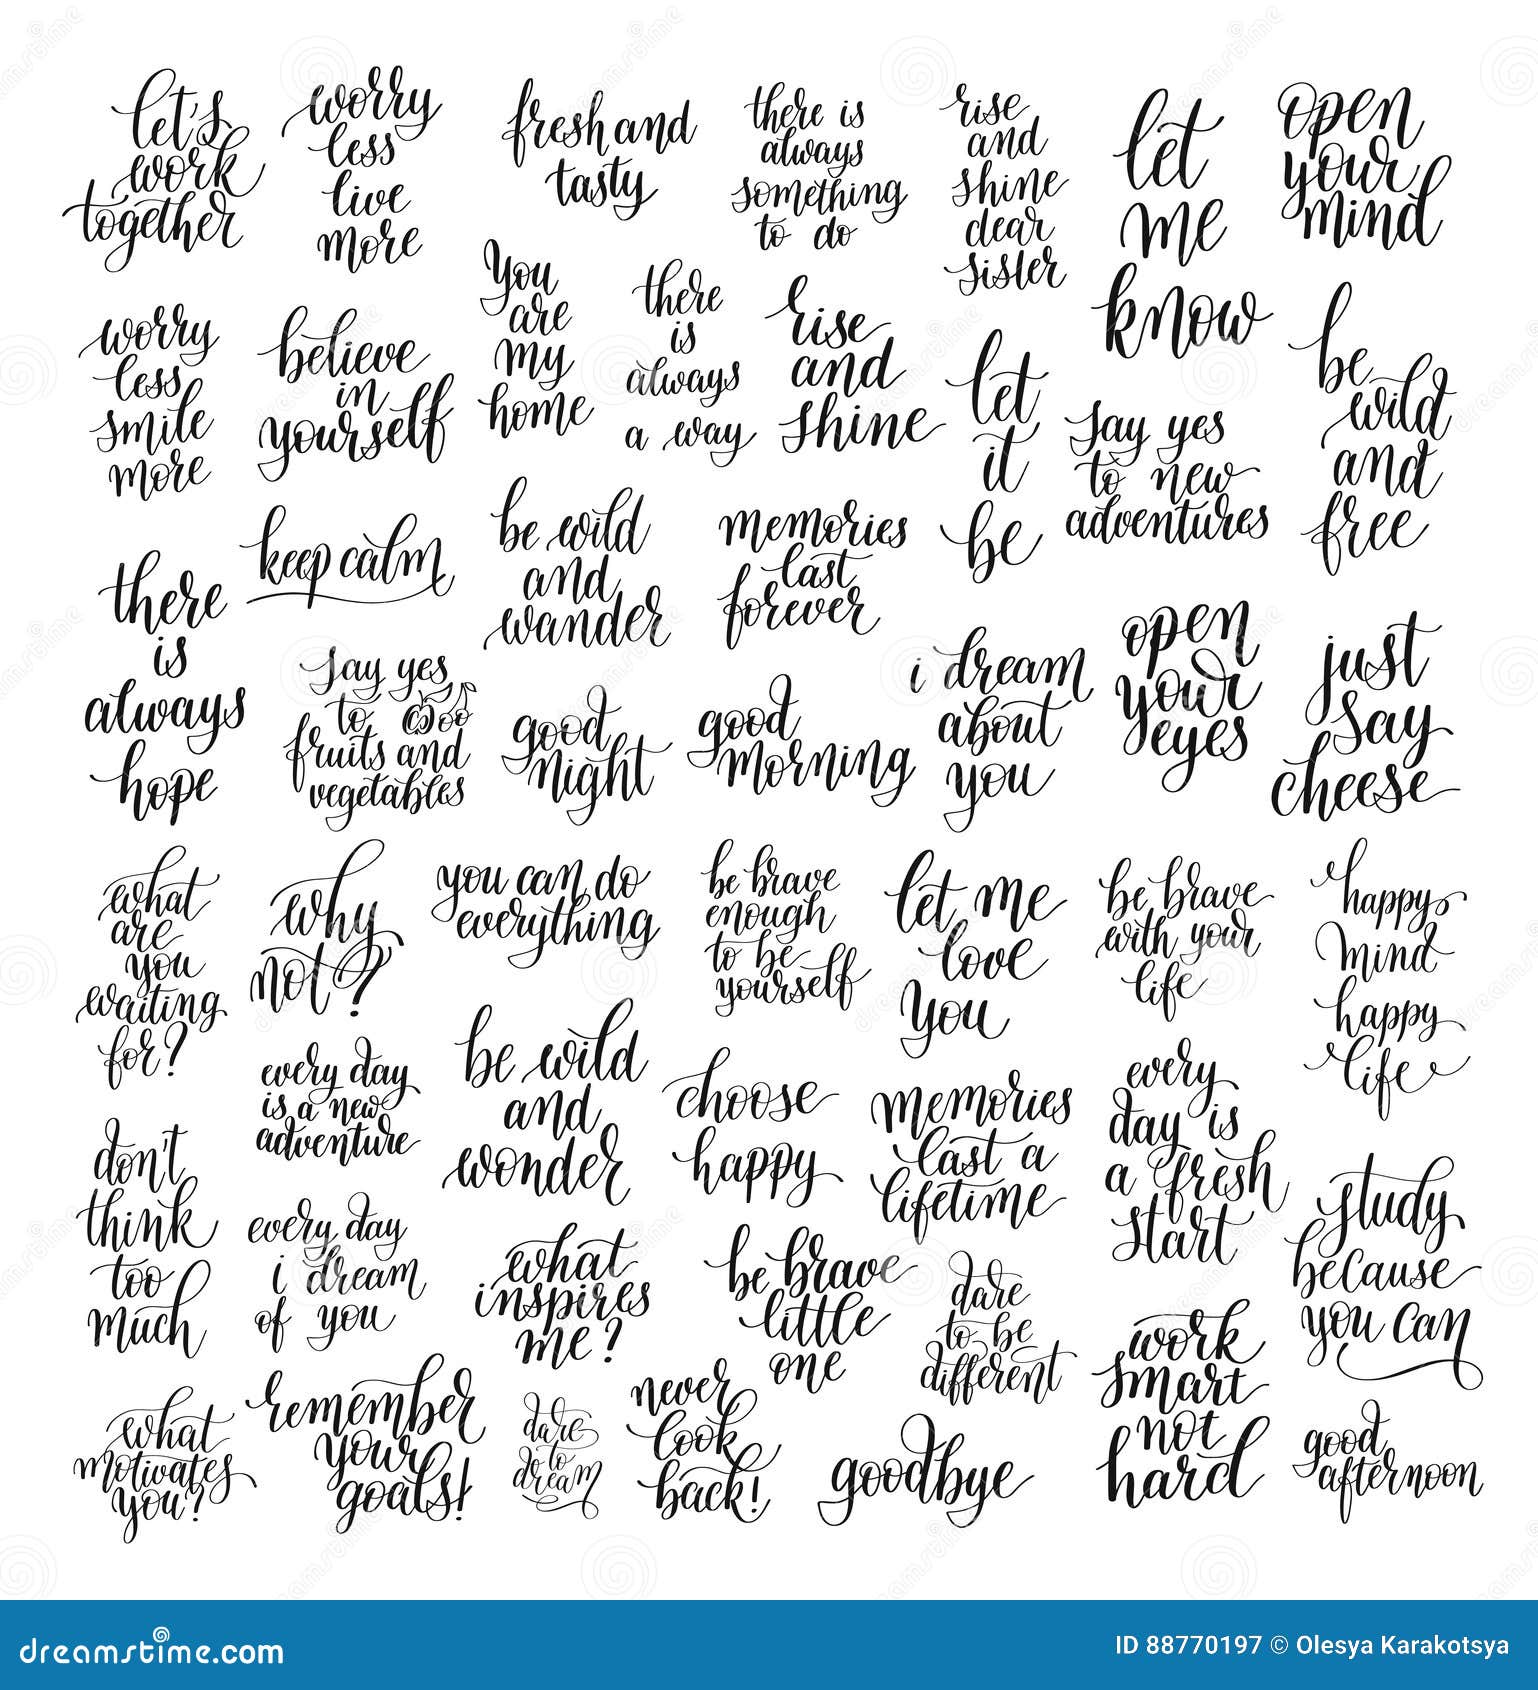 let's
work
together
worry
less
live
more
fresh and
tasty
there is
always
something
to do
rise
and
shine
dear
sister
let
me
know
open
your
mind
worry
less
smile
more
believe
in
yourself
you
are
my
home
there
is
always
a way
rise
and
shine
let
it
be
say yes
to new
adventures
be
wild
and
free
there
is
always
hope
keep calm
be wild
and
wander
memories
last
forever
say yes
to
fruits and
vegetables
good
night
good
morning
i dream
about
you
open
your
eyes
just
say
cheese
what
are
you
waiting
for?
why
not?
you can do
everything
be brave
enough
to be
yourself
let me
love
you
be brave
with your
life
happy
mind
happy
life
every day
is a new
adventure
be wild
and
wonder
choose
happy
memories
last a
lifetime
every
day is
a fresh
start
don't
think
too
much
every day
i dream
of you
what
inspires
me?
be brave
little
one
dare
to be
different
study
because
you can
work
smart
not
hard
what
motivates
you?
remember
your
goals!
dare
to
dream
never
look
back!
goodbye
good
afternoon
dreamstime.com
ID 88770197 © Olesya Karakotsya